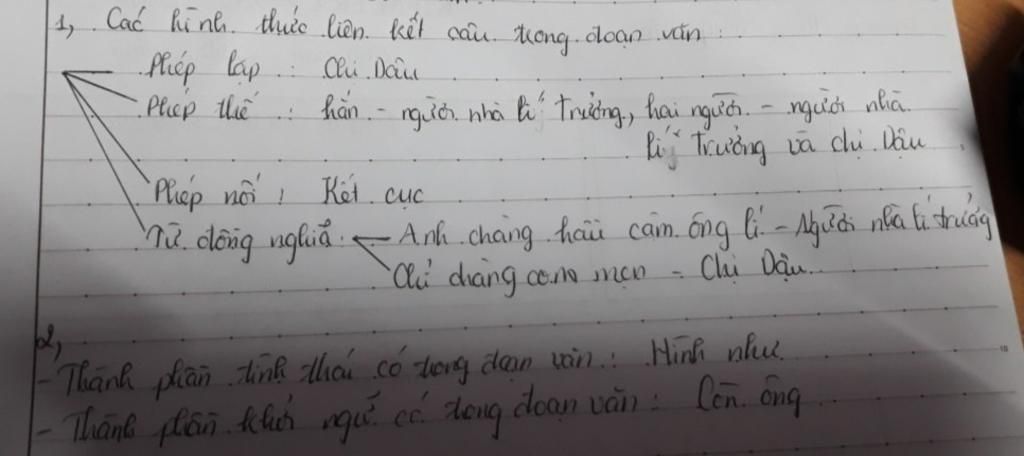 1, Các hình thức liên kết câu trong đoạn văn:
Phép lặp : Chị Dậu
Phép thế : hắn - người nhà lí Trưởng, hai người - người nhà
lí Trưởng và chị Dậu
Phép nối : Kết cục
Từ đồng nghĩa Anh chàng hầu cận ông lí - Người nhà lí trưởng
Chị chàng con mọn - Chị Dậu
2,
- Thành phần tình thái có trong đoạn văn : Hình như
- Thành phần khởi ngữ có trong đoạn văn : Còn ông